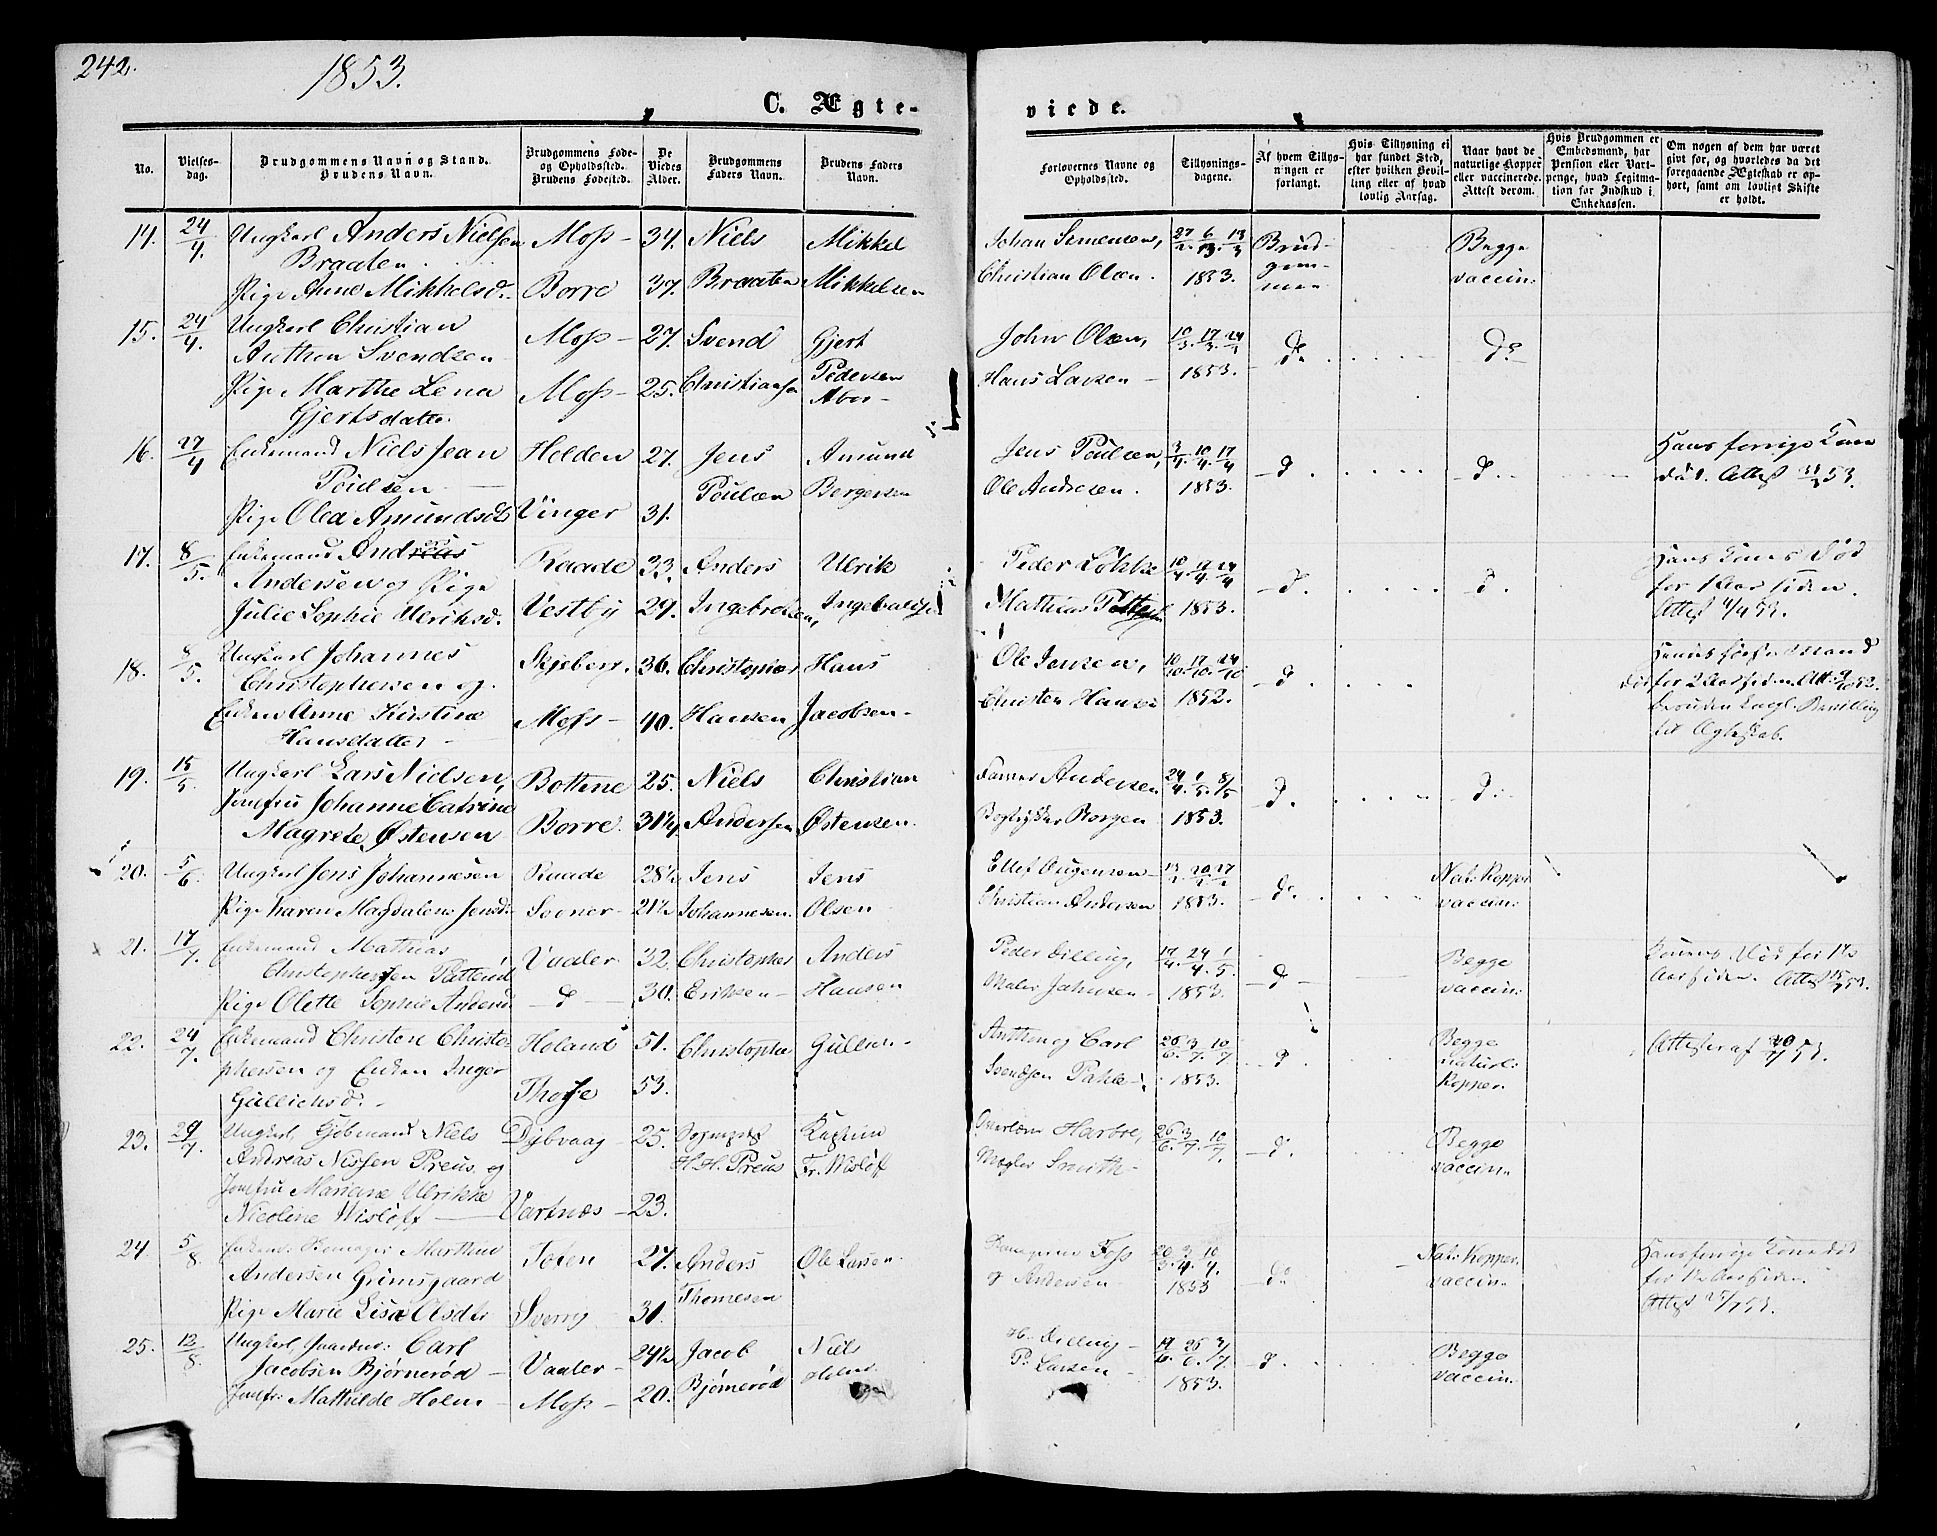 242.
1853.
C. Ægte-
viede.
No.
Vielses-
dag.
Brudgommens Navn og Stand.
Brudens Navn.
Brudgommens Føde-
og Opholdssted.
Brudens Fødested.
De
Viedes
Alder.
Brudgommens
Faders Navn.
Brudens Faders
Navn.
Forlovernes Navne og
Opholdssted.
Tillysnings-
dagene.
Af hvem Tillys-
ningen er
forlangt.
Hvis Tillysning ei
har fundet Sted,
efter hvilken Bevil-
ling eller af hvad
lovlig Aarsag.
Naar havt de
naturlige Kopper
eller vaccinerede.
Attest derom.
Hvis Brudgommen er
Embedsmand, har
Pension eller Vart-
penge, hvad Legitima-
tion for Indskud i
Enkekassen.
Om nogen af dem har været
gift før, og hvorledes da det
foregaaende Ægteskab er op-
hørt, samt om lovligt Skifte
er holdt.
14. 24/4. Ungkarl Anders Nielsen Moss 34. Niels Mikkel
Braaten.
Pige Anne Mikkelsd. Borre 37. Braaten Mikkelsen
Johan Simensen, 27/2. 6/3. 13/3 Brud- Begge
Christian Olsen. 1853. gom- vaccin:
men
15. 24/4. Ungkarl Christian Moss 27. Svend Gjert
Anthon Svendsen
Pige Marthe Lena Moss 25. Christiansen Pedersen
Gjertsdatter.
John Olsen, 10/3. 17/3. 24/4 do do
Hans Larsen 1853.
16. 27/4 Enkemand Niels Jean Holden 27. Jens Amund
Poulsen
Pige Olea Amundsd. Vinger 31. Poulsen Bergersen
Jens Poulsen, 3/4. 10/4. 17/4 d. d. Hans forrige Kone
Ole Andresen. 1853. død. Attest 53.
17. 8/5. Enkemand Andreas Raade 33. Anders Ulrik
Andersen og Pige
Julie Sophie Ulriksd. Vestby 29. Ingebretsen,
Peder Løkke 10/4. 17/4. 24/4 d. d. Hans Kones Død
Mathias 1853. for 1 Aar siden.
Attest 53.
18. 8/5. Ungkarl Johannes Skjeberg. 36. Christopher Hans
Christophersen og
Enken Anne Kirstine Moss 40. Hansen Jacobsen
Hansdatter
Ole Jensen, 10/10. 17/10. 24/10 d. Hendes første Mand
Christen Hansen 1852. død for 2 Aar siden. Att: 52.
desuden Kongl. Bevilling
til Ægteskab.
19. 15/5. Ungkarl Lars Nielsen, Bottne 25. Niels Christian
Jomfru Johanne Catrine
Magrete Østensen Borre. 31½ Andersen Østensen.
Andersen 24/4. 1/5. 8/5 d. d.
Bogtrykker Borgen 1853.
20. 5/6. Ungkarl Jens Johannesen Raade 28½ Jens Jens
Pige Karen Magdalene Jensd. Sooner 21½ Johannesen. Olsen
Ellef 13/2. 20/2. 27/2 do Nat: Kopper
Christian Andersen 1853. vaccin:
21. 17/7. Enkemand Mathias Vaaler 32. Christopher Anders
Christophersen
Pige Olette Sophie Andersd d 30. Eriksen Hansen
Peder Dilling, 17/4. 24/4. 1/5. d Begge Kones Død for 1½
Maler Johnsen 1853. vaccin: Aar siden. Attest 53.
22. 24/7. Enkemand Christen Christo- Høland 51. Christopher Gullik
phersen og Enken Inger
Gullichsd. Thorse 53.
Anthon og Carl 26/6. 3/7. 10/7 d. Begge Attester af 53.
Svendsen Pahle 1853. naturl:
Kopper.
23. 29/7. Ungkarl, Kjøbmand Niels Dybvaag 25. Sognepræst Kaptein
Andreas Nissen Preus og H. H. Preus Fr. Wisløff
Jomfru Mariane Ulrikke
Nicoline Wisløff Vartnæs 23.
26/6. 3/7. 10/7 d. Begge
Mægler Smith vaccin:
24. 5/8. Enkem: Marthin Toten 27. Anders Ole Larsen
Andersen Grimsgaard
Pige Marie Lisa Olsdtr Sverrig 31. Thomesen
Foss 20/3. 3/4. 10/4. do Nat: Kopper. Hans forrige Kone død
og Andersen 1853 vaccin: for 1½ Aar siden.
Attest 53.
25. 12/8. Ungkarl, Carl 24½ Jacob Niels
Jacobsen Bjørnerød Vaaler
Jomfr: Mathilde Holm Moss 20. Bjørnerød Holm
H. Dilling 19/6. 26/6. 3/7. d. Begge
P. Larsen 1853. vaccin: